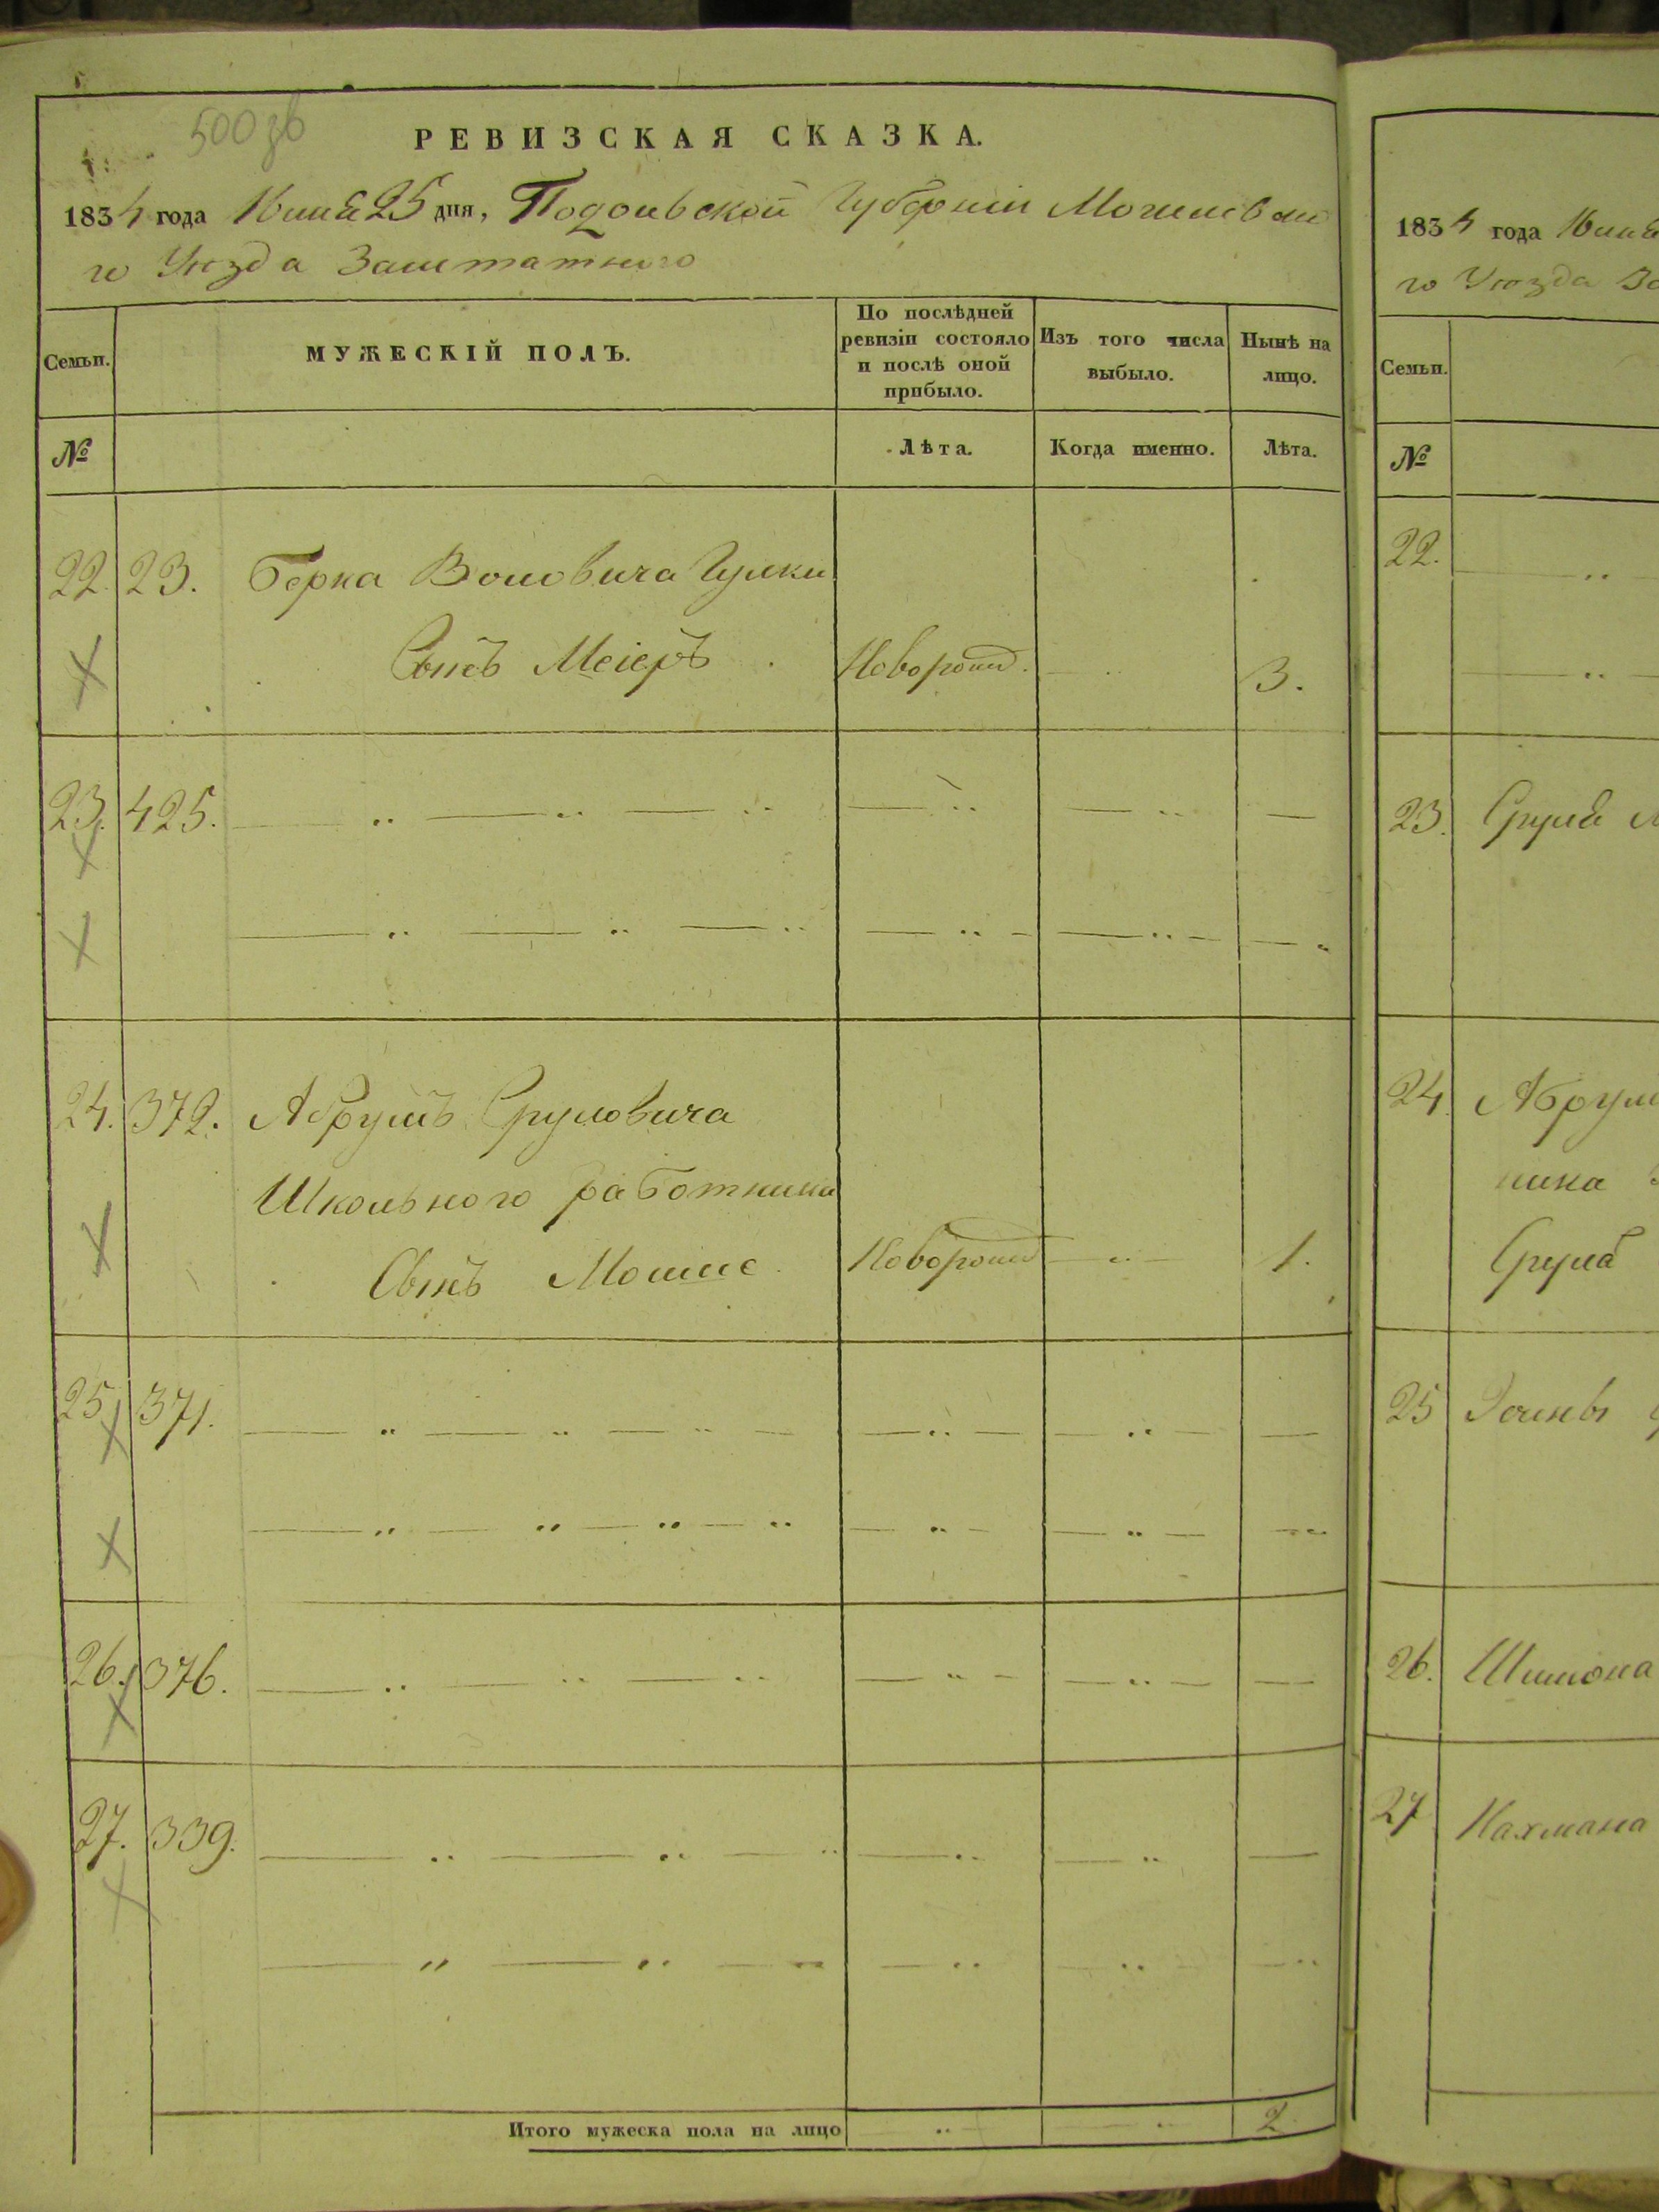 500 зв
РЕВИЗСКАЯ СКАЗКА.
1834 года Июня 25 дня, Подольской Губерніи Могилевска
го Уѣзда Заштатного
Семьи.
МУЖЕСКІЙ ПОЛЪ.
По послѣдней ревизіи состояло и послѣ оной прибыло.
Изъ того числа выбыло.
Нынѣ на лицо.
№
Лѣта.
Когда именно.
Лѣта.
22. 23. Берка Воловича Гулки
Сынъ Меіеръ Новорожд. 3.
23. 425.
24. 372. Абрумъ Сруловича
Школьного работника
Сынъ Мошко Новорожд 1.
25. 371.
26. 376.
27. 339.
Итого мужеска пола на лицо 2
1834 года Июня
го Уѣзда За
Семьи.
№
22.
23. Сруля
24. Абрума
ника
Сруля
25
26. Шимона
27 Нахмана